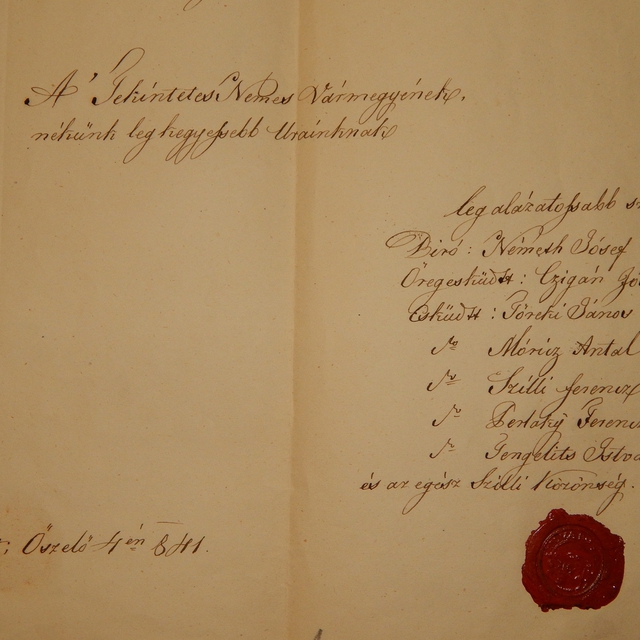 A' Tekintetes Nemes Vármegyének,
nékünk legkegyessebb Urainknak
legalázatossabb
Biró: Németh Jósef
Öregesküdtt: Czigán
Esküdtt: Töreki János
Móricz Antal
Szilli ferencz
Perlaky Ferencz
Tengelits Istvá
és az egész Szilli Közönség.
Őszelő 4én 841.